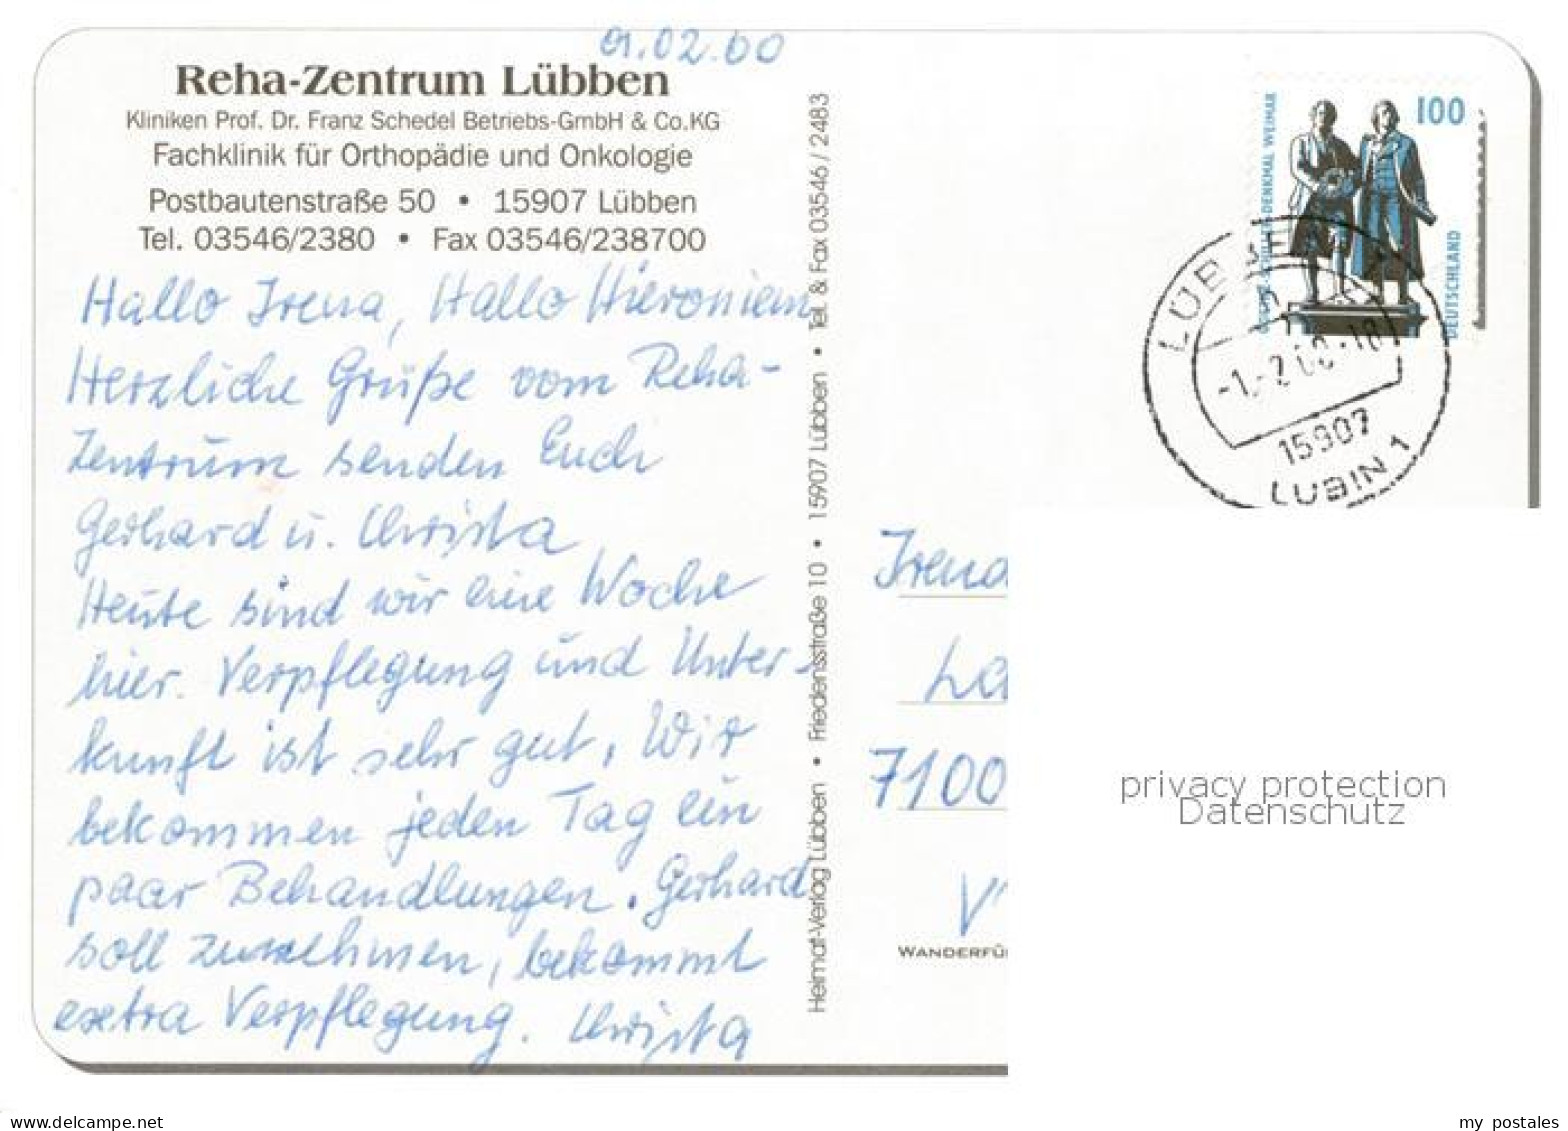 01.02.00
Reha-Zentrum Lübben
Kliniken Prof. Dr. Franz Schedel Betriebs-GmbH & Co.KG
Fachklinik für Orthopädie und Onkologie
Postbautenstraße 50 • 15907 Lübben
Tel. 03546/2380 • Fax 03546/238700
Hallo Irena, Hallo Hieroniem
Herzliche Grüße vom Reha-
Zentrum senden Euch
Gerhard u. Christa
Heute sind wir eine Woche
hier. Verpflegung und Unter-
kunft ist sehr gut, Wir
bekommen jeden Tag ein
paar Behandlungen. Gerhard
soll zunehmen, bekommt
extra Verpflegung. Christa
Heimat-Verlag Lübben • Friedensstraße 10 • 15907 Lübben • Tel. & Fax 03546/2483
100
GOETHE-SCHILLER-DENKMAL WEIMAR
DEUTSCHLAND
LÜBBEN
-1.-2.00-18
15907
LUBIN 1
Irena
La
7100
V
WANDERFÜ
privacy protection
Datenschutz
www.delcampe.net
my_postales